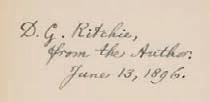 D. G. Ritchie,
from the Author.
June 13, 1896.